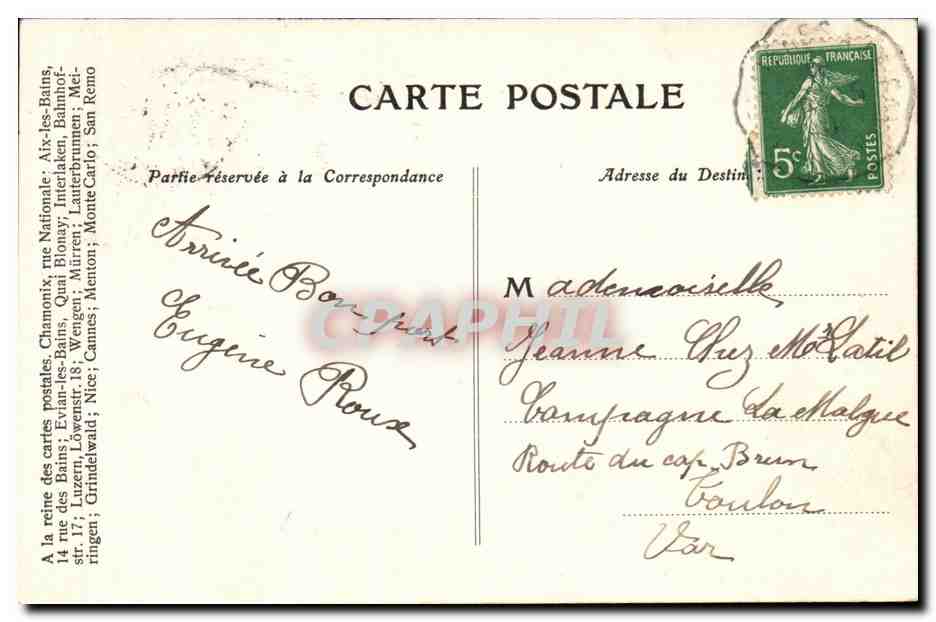 CARTE POSTALE
RÉPUBLIQUE FRANÇAISE
5c
POSTES
Partie réservée à la Correspondance
Adresse du Destin
Arrivée Bon port
Eugène Roux
Mademoiselle
Jeanne Chez Mr Latil
Campagne La Malgue
Route du cap Brun
Toulon
Var
A la reine des cartes postales. Chamonix, rue Nationale; Aix-les-Bains,
14 rue des Bains; Evian-les-Bains, Quai Blonay; Interlaken, Bahnhof-
str. 17; Luzern, Löwenstr. 18; Wengen; Mürren; Lauterbrunnen; Mei-
ringen; Grindelwald; Nice; Cannes; Menton; Monte Carlo; San Remo
CPAPHIL